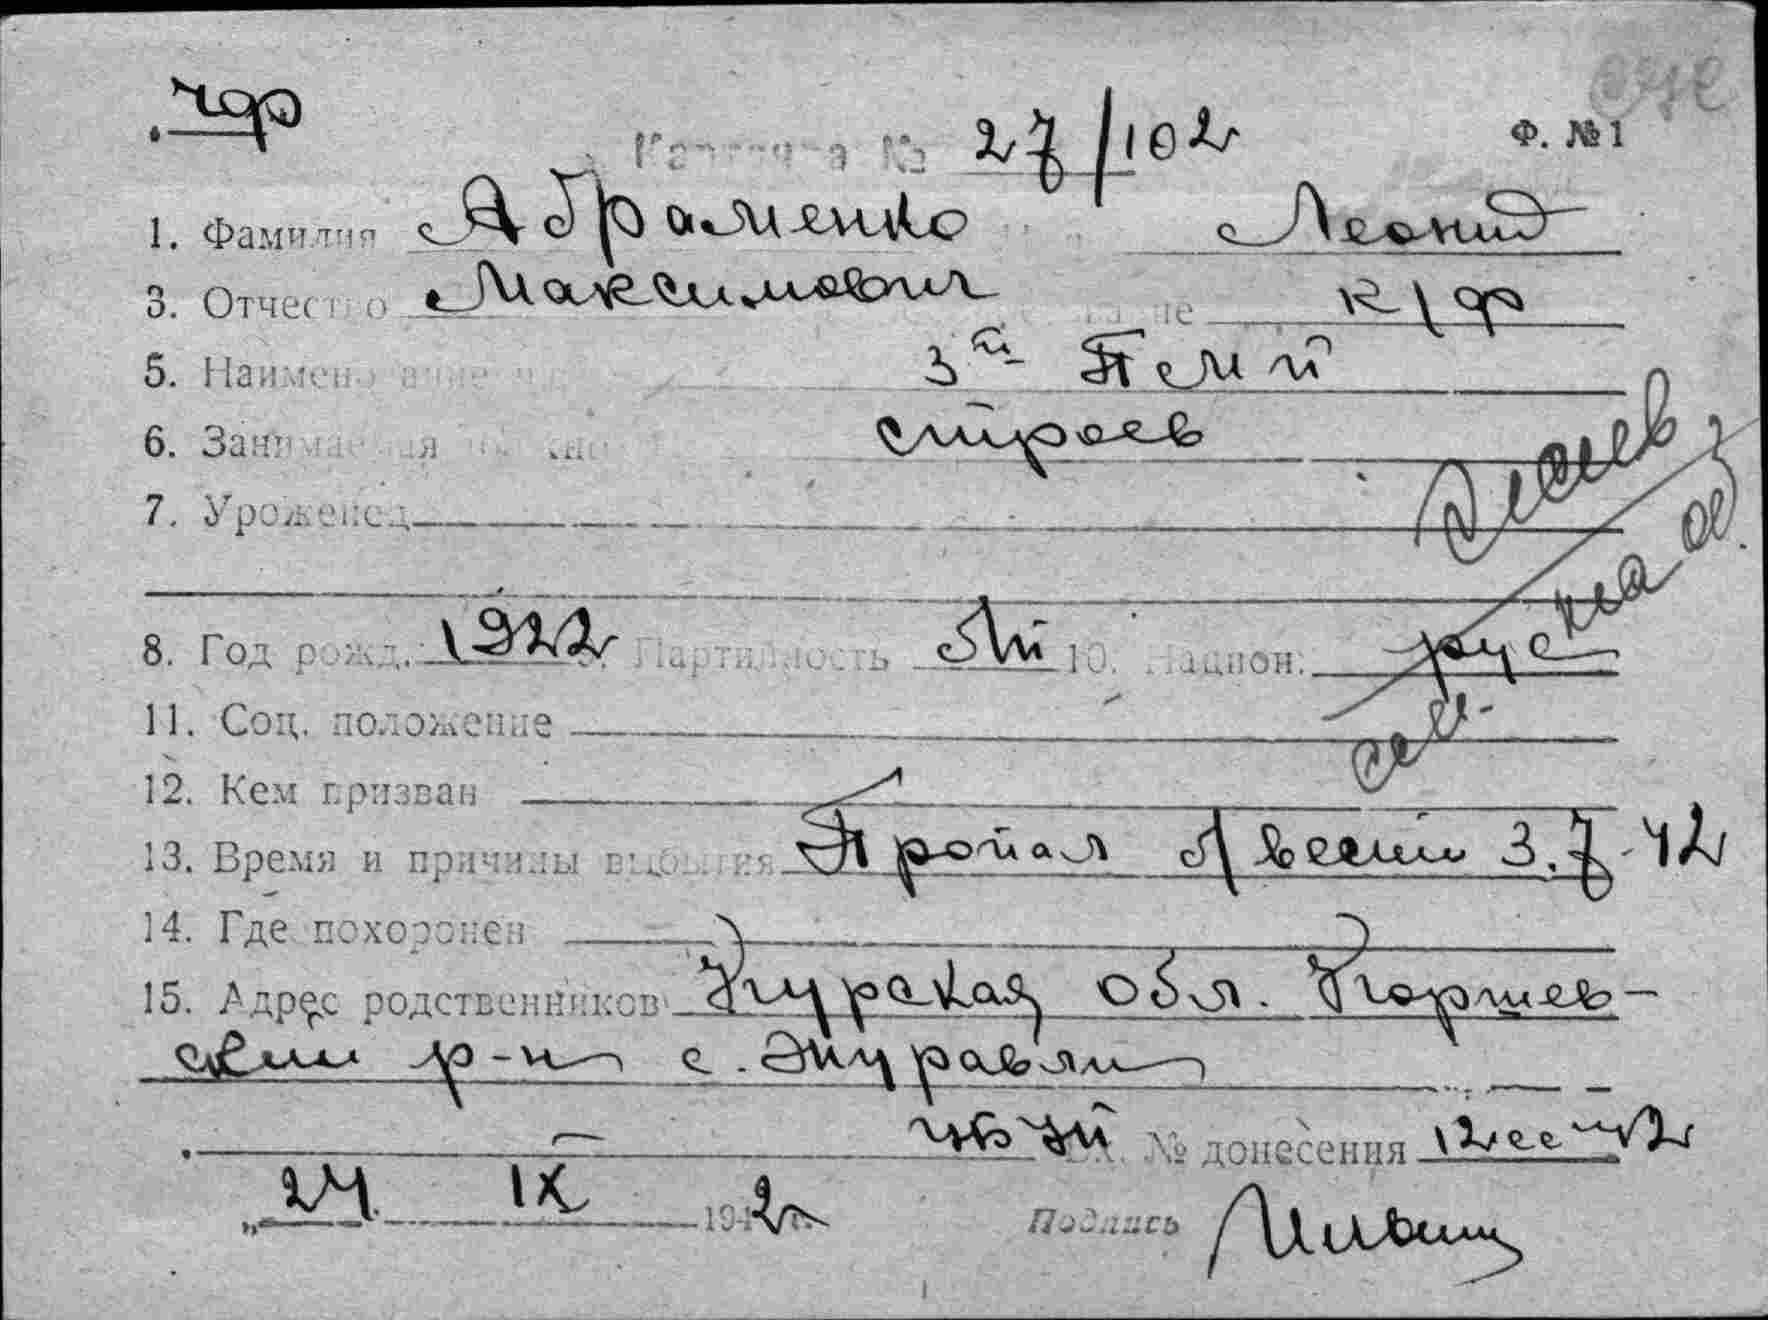 чф
Карточка № 27/102 Ф. № 1
1. Фамилия Абраменко Леонид
3. Отчество Максимович к/ф
5. Наименование 3й ПСМП
6. Занимаемая строев
7. Уроженец
8. Год рожд. 1922 Партийность б/п 10. Национ. рус
11. Соц. положение
12. Кем призван
13. Время и причины выбытия Пропал б/вести 3.7.42
14. Где похоронен
15. Адрес родственников Курская обл.
р-н с. Журавли
№ донесения 12
"24 IX 1942 г.
Подпись